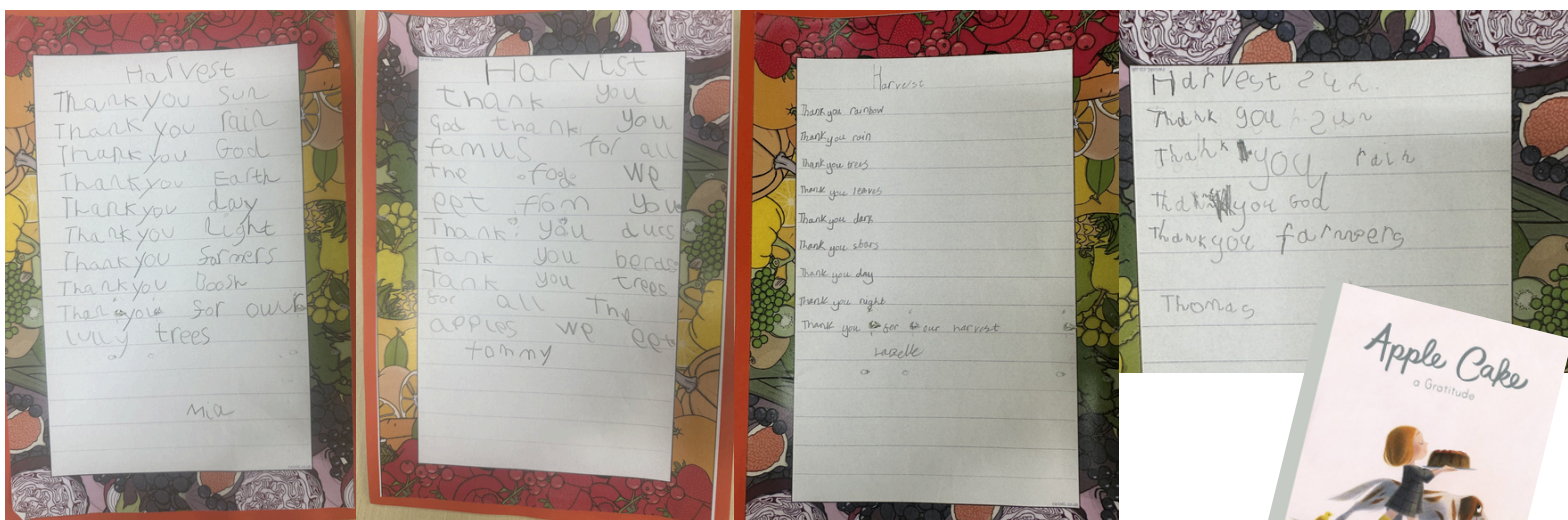 Harvest
Thank you Sun
Thank you rain
Thank you God
Thank you Earth
Thank you day
Thank you Light
Thank you farmers
Thank you
Thank you for our
trees
Mia
Harvist
thank you
God thank you
famus for all
the We
eet fom you
Thank you
Tank you berds
Tank you trees
for all The
apples we eet
tommy
Harvest
Thank you rainbow
Thank you rain
Thank you trees
Thank you leaves
Thank you dark
Thank you stars
Thank you day
Thank you night
Thank you for our harvest
Harvest
Thank you Sun
Thank you rain
Thank you God
Thank you farmers
Thomas
Apple Cake
a Gratitude